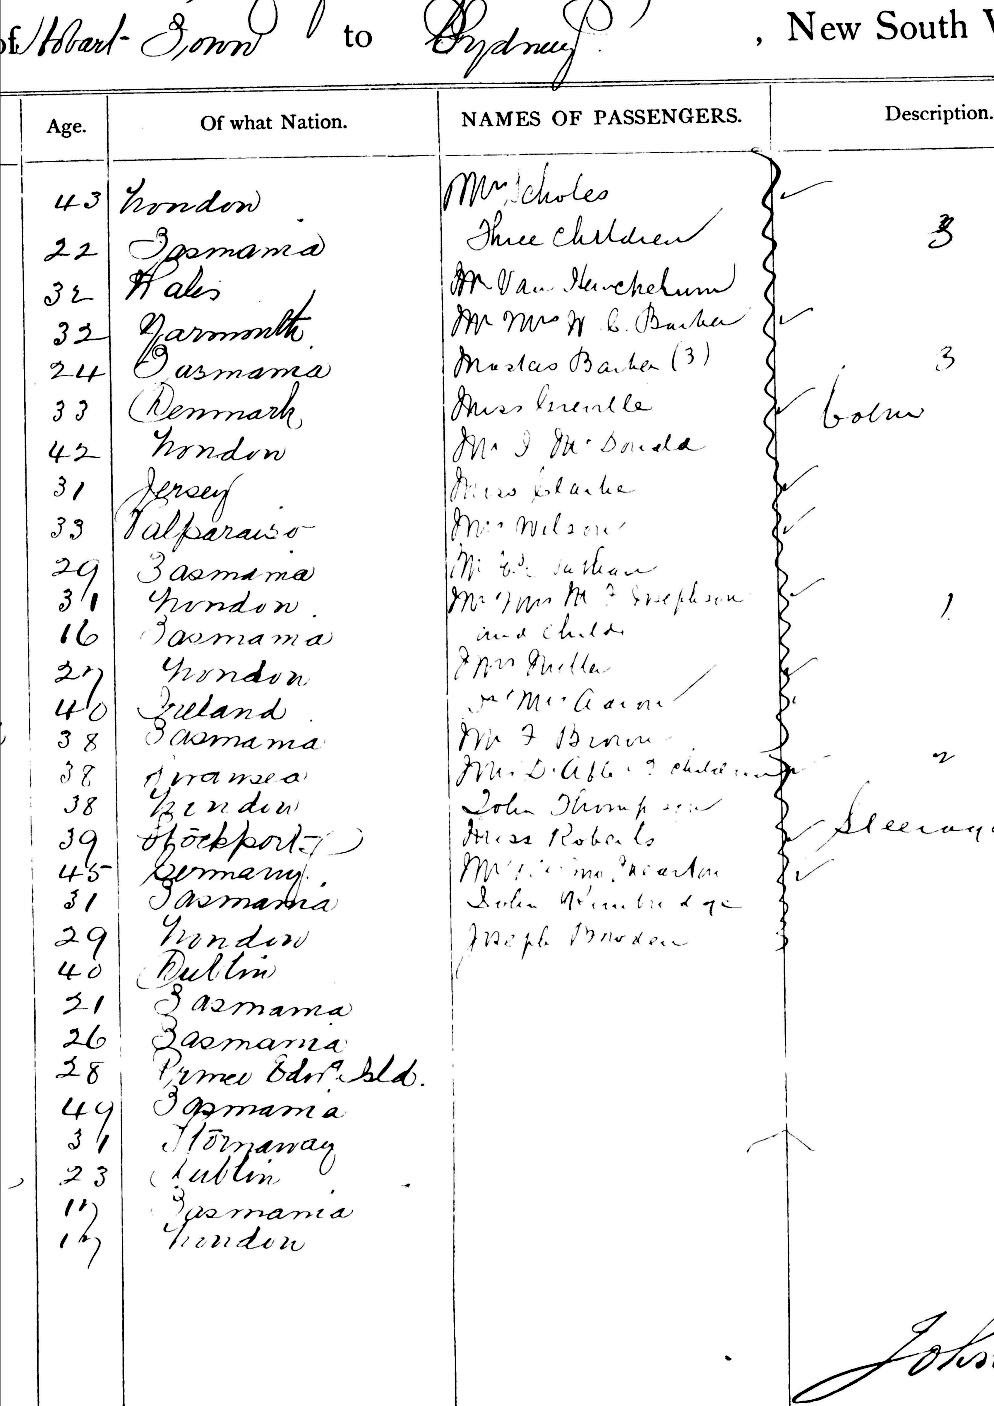 of Hobart Town to Sydney, New South
Age. Of what Nation. NAMES OF PASSENGERS. Description.
43 London Mrs Scholes
22 Tasmania Three Children 3
32 Wales Mr Van
32 Yarmouth Mr Mrs W C. Barker
24 Tasmania Masters Barker (3) 3
33 Denmark Miss Greville
42 London Mr J McDonald
31 Jersey Miss Clarke
33 Valparaiso Mrs Wilson
29 Tasmania
31 London Mr Mrs M F Josephson 1
16 Tasmania and Child
27 London Mrs Miller
40 Ireland Aaron
38 Tasmania Mr F Brown
38 Swansea children 2
38 London John Thompson
39 Stockport Miss Roberts Steerage
45 Germany
31 Tasmania John
29 London Joseph Bowden
40 Dublin
21 Tasmania
26 Tasmania
28 Prince Edwd Isld.
49 Tasmania
31 Stornaway
23 Dublin
17 Tasmania
17 London
John